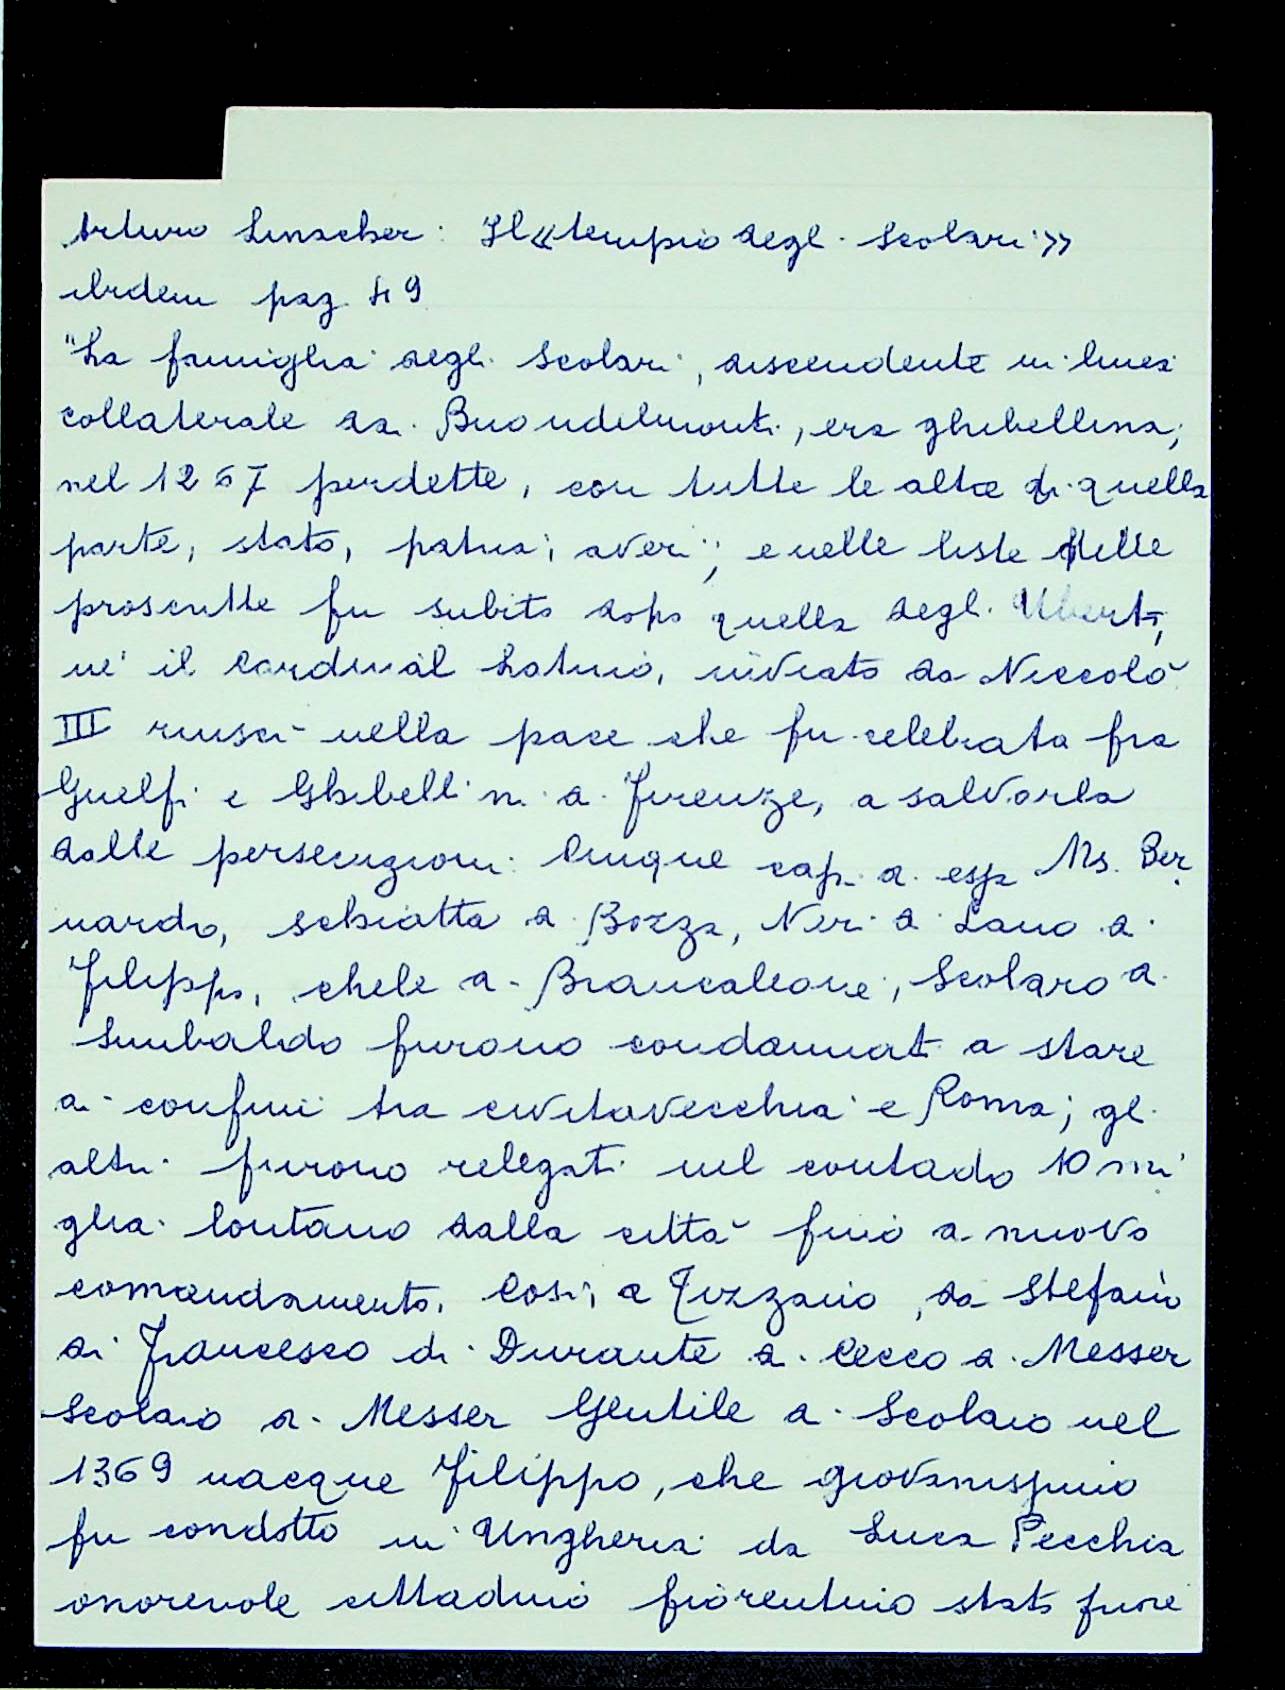 Arturo Linacher: Il «tempio degli Scolari»
ibidem pag. 49
"La famiglia degli Scolari, discendente in linea
collaterale dai Buondelmonti, era ghibellina;
nel 1267 perdette, con tutte le altre di quella
parte, stato, patria, averi; e nelle liste delle
proscritte fu subito dopo quella degli Uberti,
né il Cardinal Latino, inviato da Niccolò
III riuscì nella pace che fu celebrata fra
Guelfi e Ghibellini a Firenze, a salvarla
dalle persecuzioni. Cinque capi di essa Ms. Ber
nardo, Schiatta di Bozza, Neri di Lano di
Filippo, Chele di Brancaleone, Scolaro di
Sinibaldo furono condannati a stare
ai confini tra Civitavecchia e Roma; gli
altri furono relegati nel contado 10 mi
glia lontano dalla città fino a nuovo
comandamento. Così, a Tizzano, da Stefano
di Francesco di Durante di Cecco di Messer
Scolaio di Messer Gentile di Scolaio nel
1369 nacque Filippo, che giovanissimo
fu condotto in Ungheria da Luca Pecchia
onorevole cittadino fiorentino stato fuore